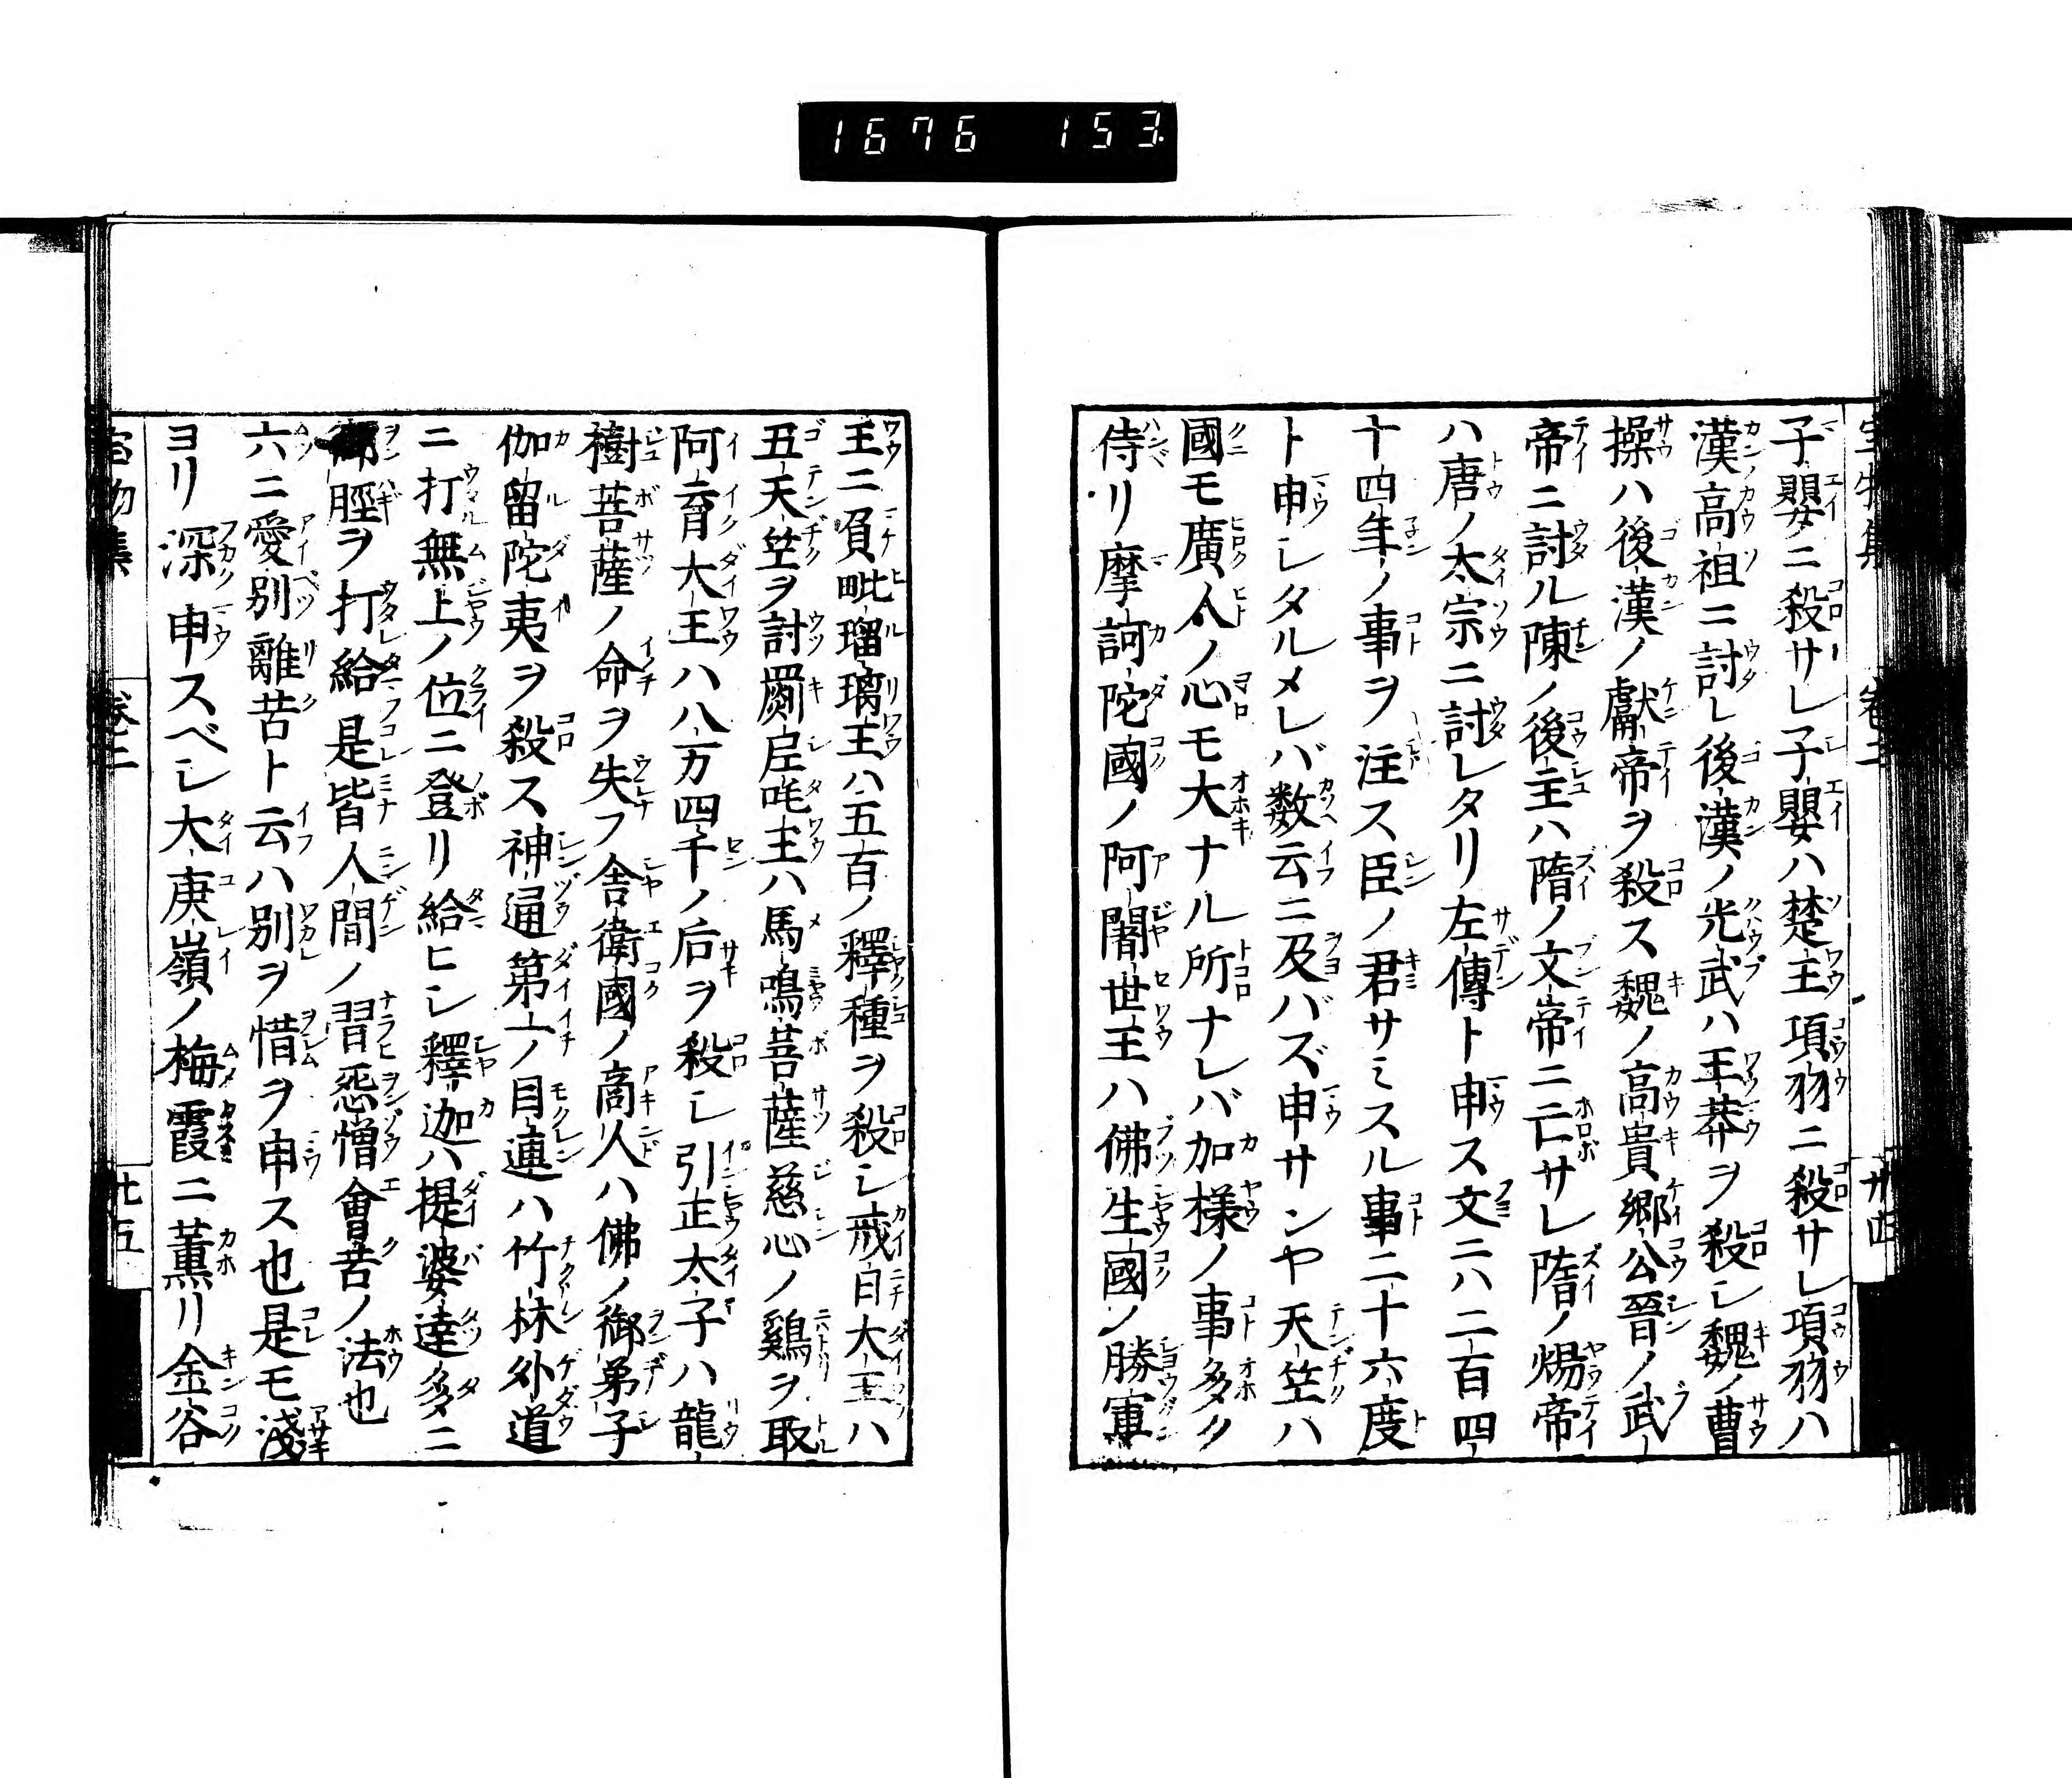 1676 153
子嬰ニ殺サレ子嬰ハ楚王項羽ニ殺サレ項羽ハ
漢高祖ニ討レ後漢ノ光武ハ王莽ヲ殺シ魏ノ曹
操ハ後漢ノ獻帝ヲ殺ス魏ノ高貴郷公晉ノ武
帝ニ討ル陳ノ後主ハ隋ノ文帝ニ亡サレ隋ノ煬帝
ハ唐ノ太宗ニ討レタリ左傳ト申ス文ニハ二百四
十四年ノ事ヲ注ス臣ノ君サミスル事二十六度
ト申シタルメレバ数云ニ及バズ申サンヤ天竺ハ
國モ廣人ノ心モ大ナル所ナレバ加様ノ事多ク
侍リ摩訶陀國ノ阿闍世王ハ佛生國ノ勝軍
王ニ負毗瑠璃王ハ五百ノ釋種ヲ殺シ戒日大王ハ
五天竺ヲ討罽昵吒王ハ馬鳴菩薩慈心ノ鷄ヲ取
阿育大王ハ八万四千ノ后ヲ殺シ引正太子ハ龍
樹菩薩ノ命ヲ失フ舎衛國ノ商人ハ佛ノ御弟子
伽留陀夷ヲ殺ス神通第一ノ目連ハ竹林外道
ニ打無上ノ位ニ登リ給ヒシ釋迦ハ提婆達多ニ
御脛ヲ打給是皆人間ノ習怨憎會苦ノ法也
六ニ愛別離苦ト云ハ別ヲ惜ヲ申ス也是モ淺
ヨリ深申スベシ大庾嶺ノ梅霞ニ薫リ金谷
宝物集 卷二 廿五